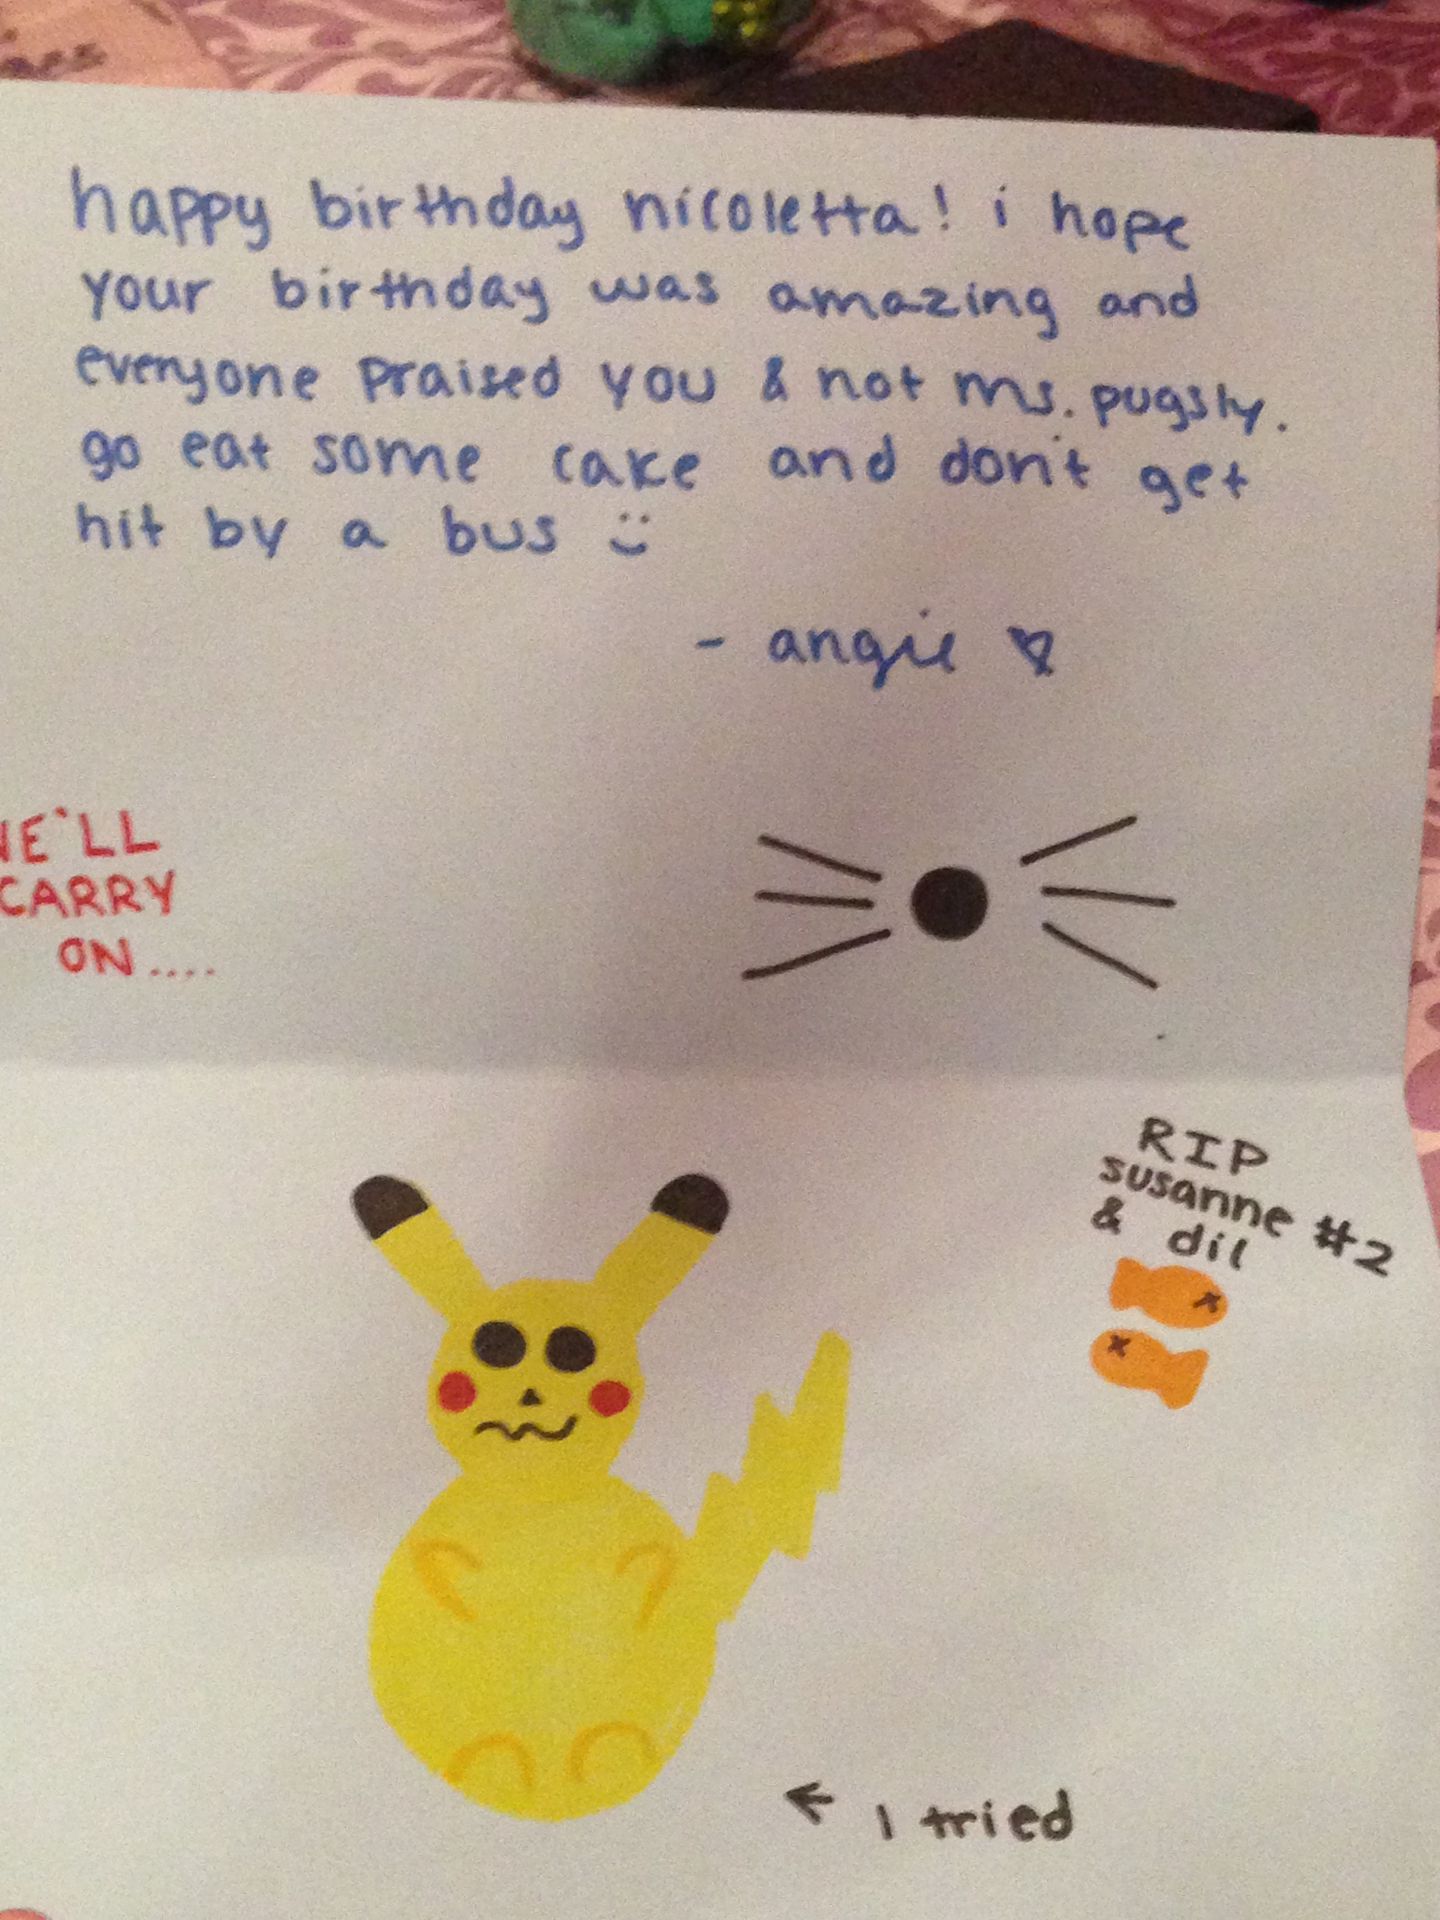 happy birthday nicoletta! i hope
your birthday was amazing and
everyone praised you & not ms. pugsly.
go eat some cake and don't get
hit by a bus
- angie
WE'LL
CARRY
ON....
RIP
susanne #2
& dil
← I tried